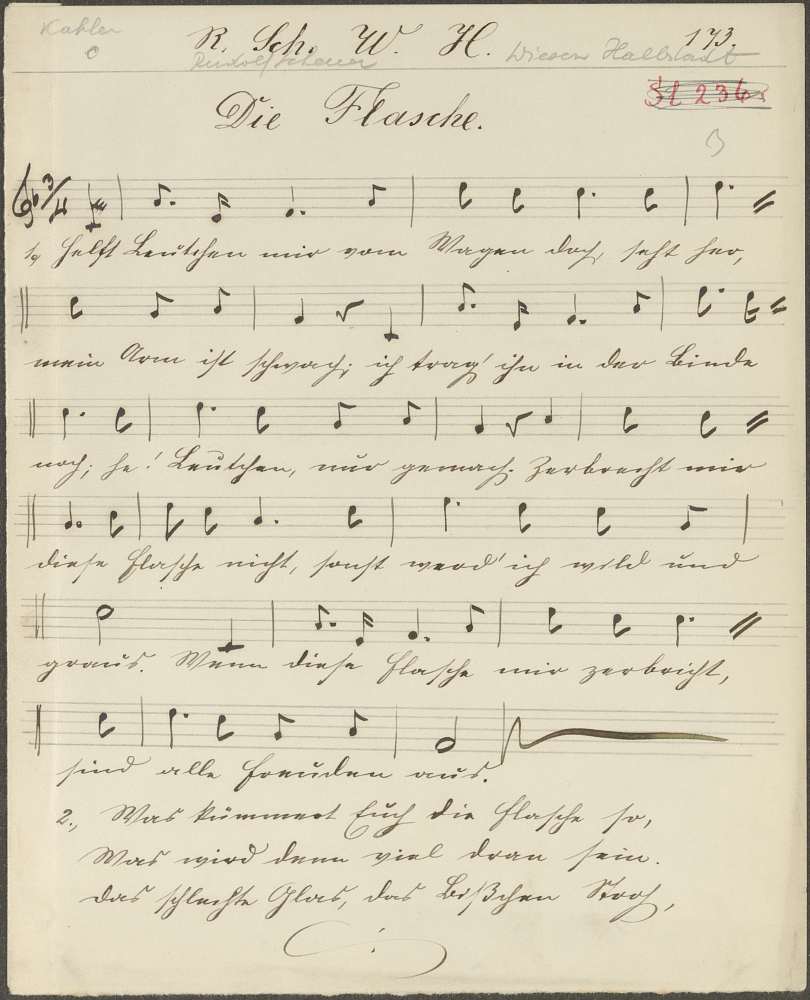 Kahler
R. Sch. W. H. 173.
Rudolf Scheuer Wiesen Halbstadt
Die Flasche.
3/4
1, Helft Leutchen mir vom Wagen doch, seht her,
mein Arm ist schwach; ich trag' ihn in der Binde
noch; he! Leutchen, nur gemach. Zerbrecht mir
diese Flasche nicht, sonst werd' ich wild und
graus. Wenn diese Flasche mir zerbricht,
sind alle Freuden aus.
2., Was kümmert Euch die Flasche so,
Was wird denn viel dran sein.
das schlechte Glas, das Bißchen Stroh,